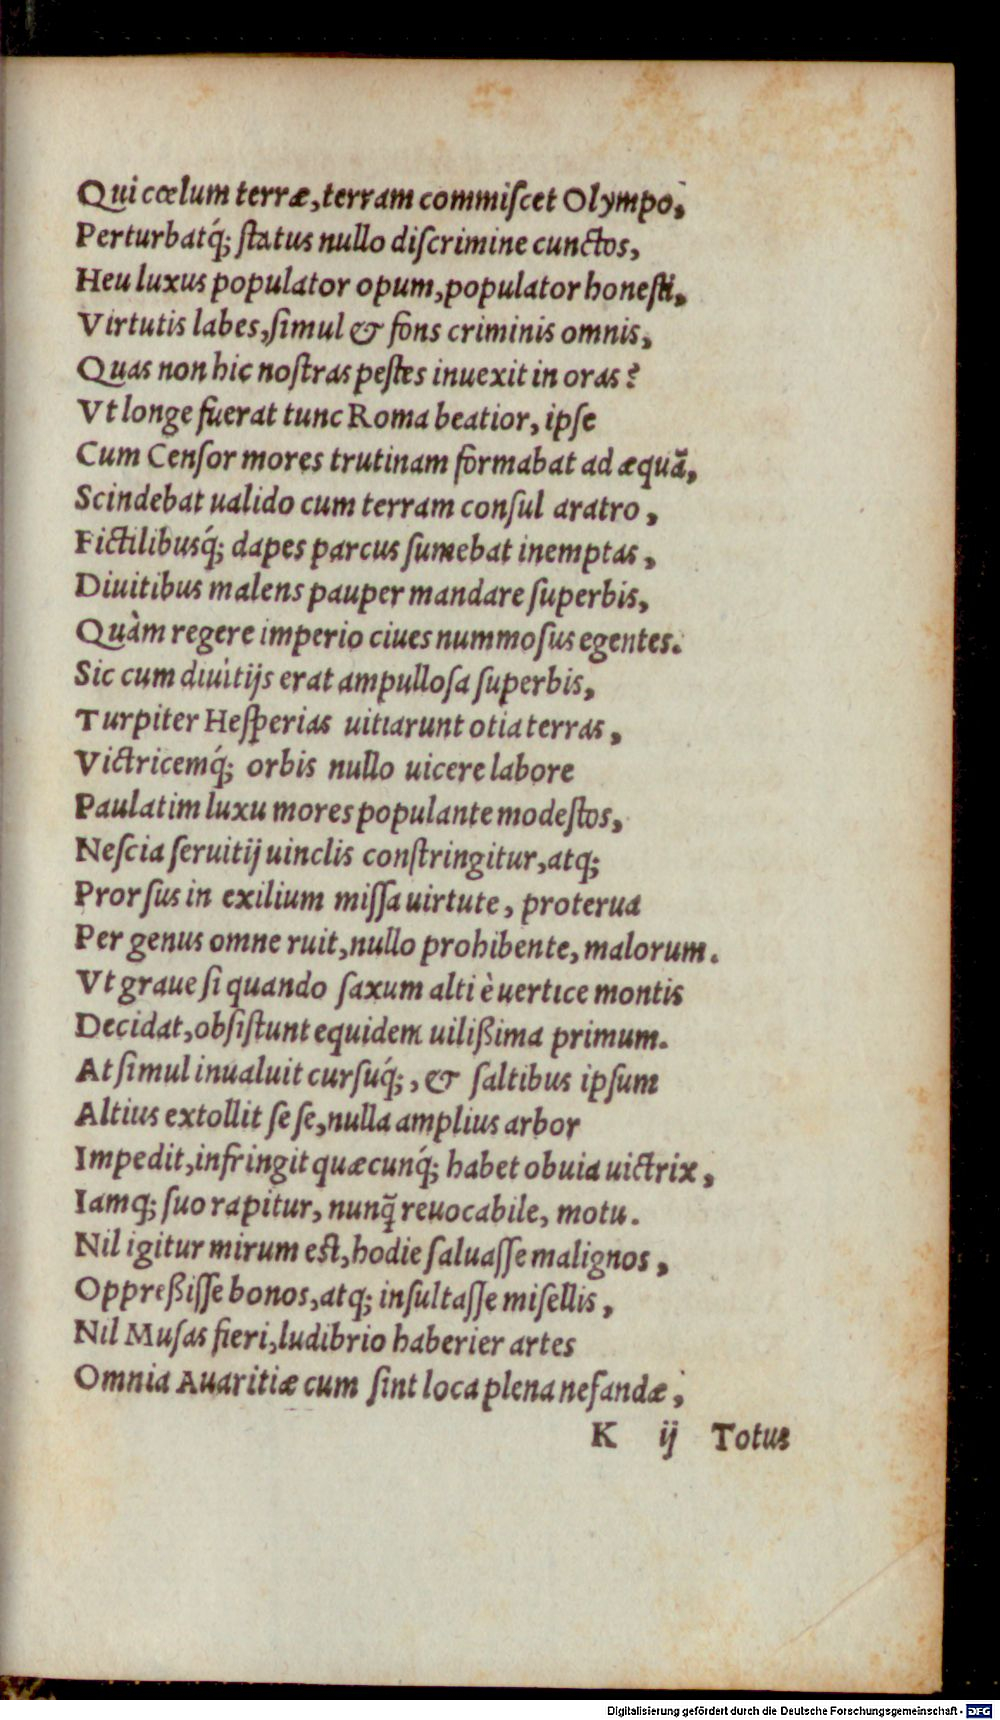 Qui cœlum terræ, terram commiſcet Olympo,
Perturbatq́; ſtatus nullo diſcrimine cunctos,
Heu luxus populator opum, populator honeſti,
Virtutis labes, ſimul & fons criminis omnis,
Quas non hic noſtras peſtes inuexit in oras?
Vt longe fuerat tunc Roma beatior, ipſe
Cum Cenſor mores trutinam formabat ad æquã,
Scindebat ualido cum terram conſul aratro,
Fictilibusq́; dapes parcus ſumebat inemptas,
Diuitibus malens pauper mandare ſuperbis,
Quàm regere imperio ciues nummoſus egentes.
Sic cum diuitijs erat ampulloſa ſuperbis,
Turpiter Heſperias uitiarunt otia terras,
Victricemq́; orbis nullo uicere labore
Paulatim luxu mores populante modeſtos,
Neſcia ſeruitij uinclis conſtringitur, atq;
Prorſus in exilium miſſa uirtute, proterua
Per genus omne ruit, nullo prohibente, malorum.
Vt graue ſi quando ſaxum alti è uertice montis
Decidat, obſiſtunt equidem uilißima primum.
At ſimul inualuit curſuq́;, & ſaltibus ipſum
Altius extollit ſe ſe, nulla amplius arbor
Impedit, infringit quæcunq́; habet obuia uictrix,
Iamq; ſuo rapitur, nunq̃ reuocabile, motu.
Nil igitur mirum eſt, hodie ſaluaſſe malignos,
Oppreßiſſe bonos, atq; inſultaſſe miſellis,
Nil Muſas fieri, ludibrio haberier artes
Omnia Auaritiæ cum ſint loca plena nefandæ,
K ij Totus
Digitalisierung gefördert durch die Deutsche Forschungsgemeinschaft - DFG